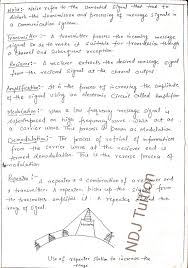 Noise:- Noise refers to the unwanted signal that tend to
disturb the transmission and processing of message signals in
a communication system.
Transmitter:- A transmitter process the incoming message
signal so as to make it suitable for transmission through
channel and subsequent reception.
Reciever:- A reciever extracts the desired message signal
from the recieved signal at the channel output
Amplification:- It is the process of increasing the amplitude
of the signal using an electronic circuit called Amplifier
Modulation:- When a low frequency message signal is
superimposed on high frequency wave which act as
a carrier wave. This process is known as modulation
Demodulation:- The process of retrival of information
from the carrier wave at the reciever end is
termed demodulation. This is the reverse process of
modulation
Repeater:- A repeater is a combination of a reciever and
a transmitter. A repeater, picks up the signal from
the transmitter amplifies it
range of signal
Use of repeater station to increase the
range
NDJ Tuition